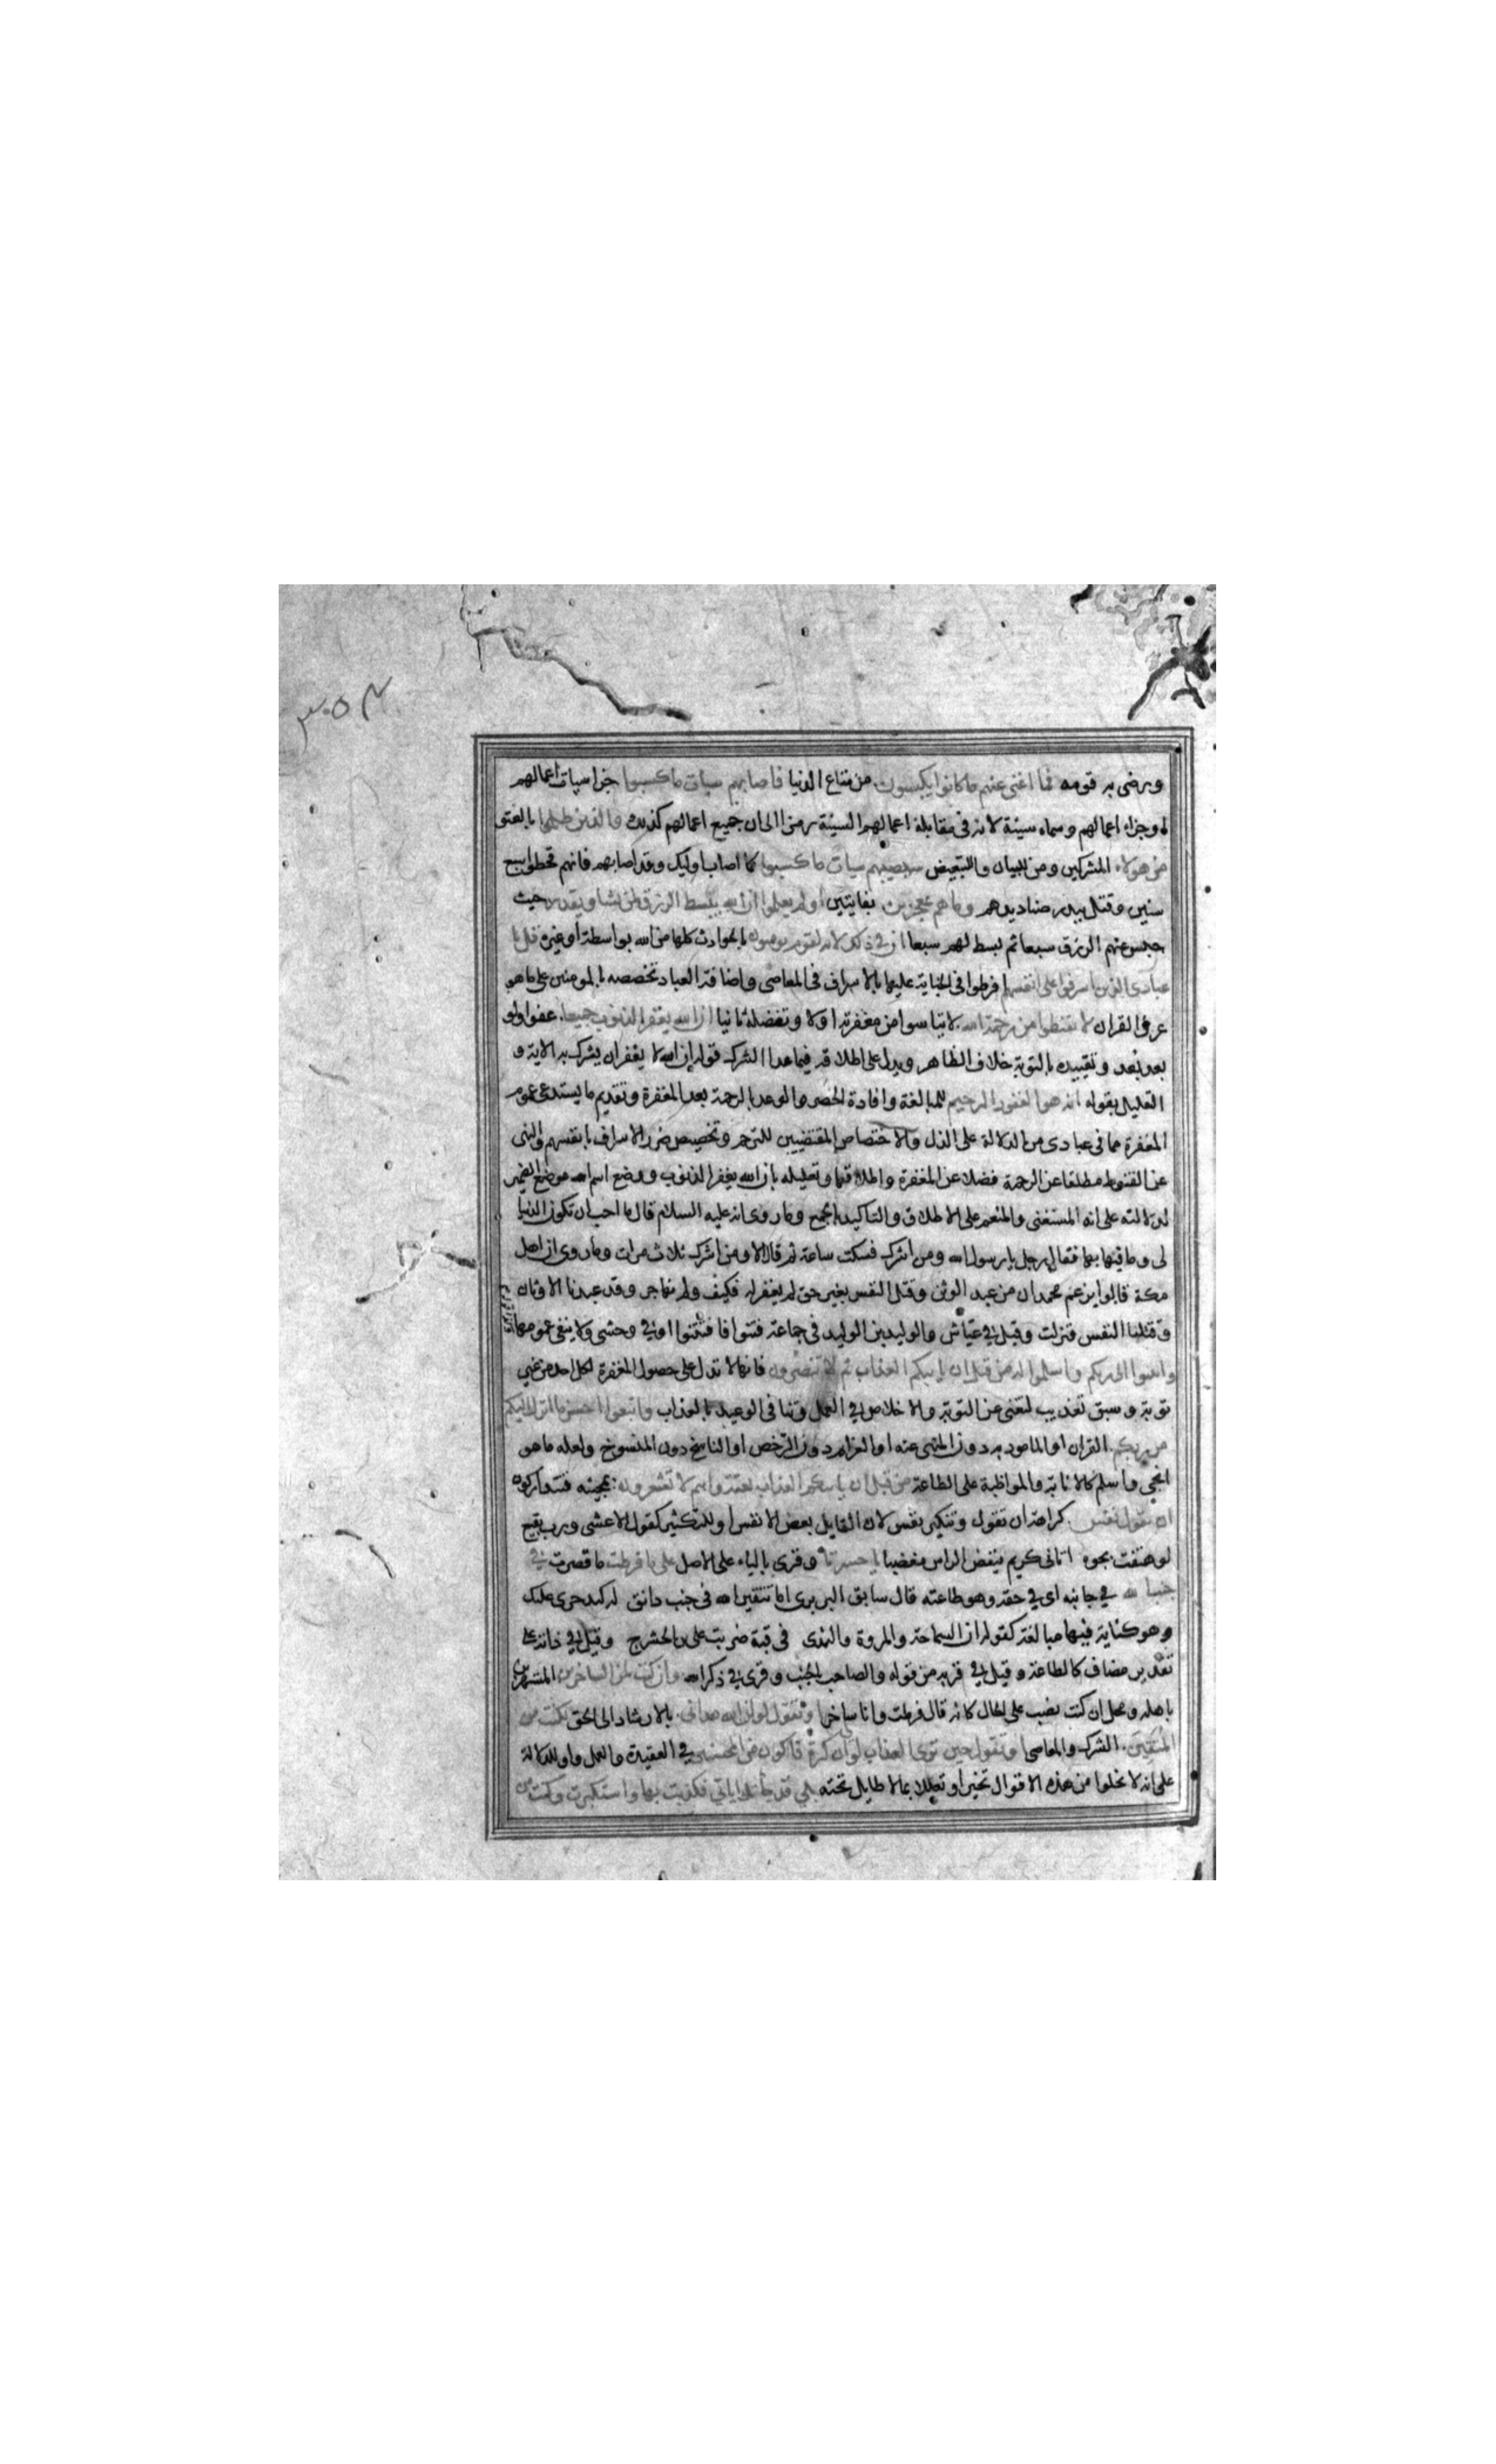 ٣٥٤
ورضى به قومه فما اغنى عنهم ما كانوا يكسبون من متاع الدنيا فاصابهم سيات ما كسبوا جزا سيات اعمالهم
او جزاء اعمالهم وسماه سيئة لانه فى مقابلة اعمالهم السيئة رمزا الى ان جميع اعمالهم كذلك والذين ظلموا بالعتو
من هولاء المشركين ومن للبيان والتبعيض سيصيبهم سيات ما كسبوا كما اصاب اوليك وقد اصابهم فانهم قحطوا سبع
سنين وقتل ببدر صناديدهم وما هم بمعجزين بفايتين اولم يعلموا ان الله يبسط الرزق لمن يشا ويقدر حيث
حبس عنهم الرزق سبعا ثم بسط لهم سبعا ان في ذلك لايات لقوم يومنون بان الحوادث كلها من الله بواسطة او غيره قل يا
عبادى الذين اسرفوا على انفسهم افرطوا فى الجناية عليها بالاسراف فى المعاصى واضافة العباد تخصصه بالمومنين على ما هو
عرف القران لا تقنطوا من رحمة الله لا تياسوا من مغفرته اولا وتفضله ثانيا ان الله يغفر الذنوب جميعا عفوا ولو
بعد بعد وتقييده بالتوبة خلاف الظاهر ويدل على اطلاقه فيما عدا الشرك قوله ان الله لا يغفر ان يشرك به الاية و
التعليل بقوله انه هو الغفور الرحيم للمبالغة وافادة الحصر والوعد بالرحمة بعد المغفرة وتقديم ما يستدعى عموم
المغفرة مما فى عبادى من الدلالة على الذل والاختصاص المقتضيين للترحم وتخصيص ضرر الاسراف بانفسهم والنهى
عن القنوط مطلقا عن الرحمة فضلا عن المغفرة واطلاقها وتعليله بان الله يغفر الذنوب ووضع اسم الله موضع الضمير
لدلالته على انه المستغنى والمنعم على الاطلاق والتاكيد بالجميع وما روى انه عليه السلام قال ما احب ان تكون الدنيا
لى وما فيها بها فقال رجل يا رسول الله ومن اشرك فسكت ساعة ثم قال الا ومن اشرك ثلاث مرات وما روى ان اهل
مكة قالوا يزعم محمد ان من عبد الوثن وقتل النفس بغير حق لم يغفر له فكيف ولم نهاجر وقد عبدنا الاوثان
وقتلنا النفس فنزلت وقيل في عياش والوليد بن الوليد فى جماعة فتنوا فافتتنوا او في وحشى ولا ينفى عمومها
وانيبوا الى ربكم واسلموا له من قبل ان ياتيكم العذاب ثم لا تنصرون فانها لا تدل على حصول المغفرة لكل احد من غير
توبة وسبق تعذيب لتغنى عن التوبة والاخلاص في العمل وتنافى الوعيد بالعذاب واتبعوا احسن ما انزل اليكم
من ربكم القران او المامور به دون المنهى عنه او العزايم دون الرخص او الناسخ دون المنسوخ ولعله ما هو
انجى واسلم كالانابة والمواظبة على الطاعة من قبل ان ياتيكم العذاب بغتة وانتم لا تشعرون بمجيئه فتتداركون
ان تقول نفس كراهة ان تقول وتنكير نفس لان القايل بعض الانفس او للتكثير كقول الاعشى ورب بقيع
لو هتفت بجوه اتانى كريم ينفض الراس مغضبا يا حسرتا وقرى بالياء على الاصل على ما فرطت ما قصرت في
جنب الله في جانبه اى في حقه وهو طاعته قال سابق البربرى اما تتقين الله فى جنب وامق له كبد حرى عليك
وهو كناية فيها مبالغة كقوله ان السماحة والمروة والندى فى قبة ضربت على ابن الحشرج وقيل في ذاته على
تقدير مضاف كالطاعة وقيل في قربه من قوله والصاحب بالجنب وقرى في ذكر الله وان كنت لمن الساخرين المستهزين
باهله ومحل ان كنت نصب على الحال كانه قال فرطت وانا ساخر او تقول لو ان الله هدانى بالارشاد الى الحق لكنت من
المتقين الشرك والمعاصى او تقول حين ترى العذاب لو ان لى كرة فاكون من المحسنين في العقيدة والعمل واو للدلالة
على انه لا تخلوا من هذه الاقوال تحيرا وتعللا بما لا طايل تحته بلى قد جاتك اياتي فكذبت بها واستكبرت وكنت من